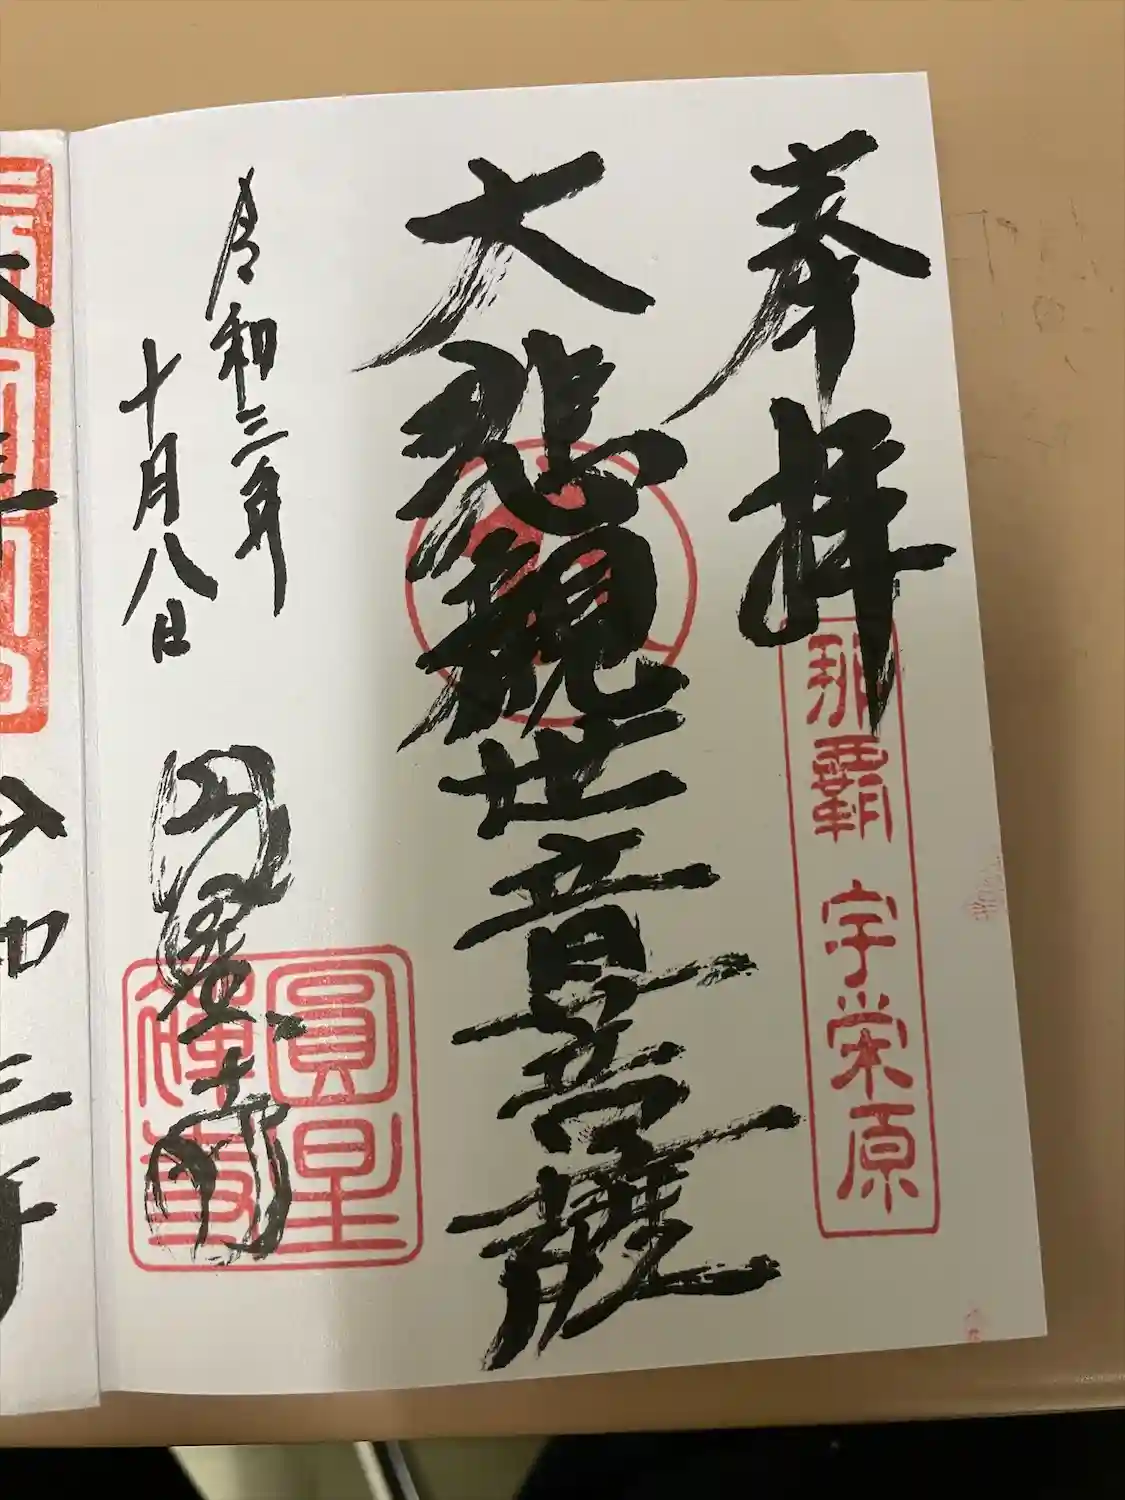 奉拝
那覇 宇栄原
大悲観世音菩薩
令和三年
十月八日
円星寺
圓星
禅寺